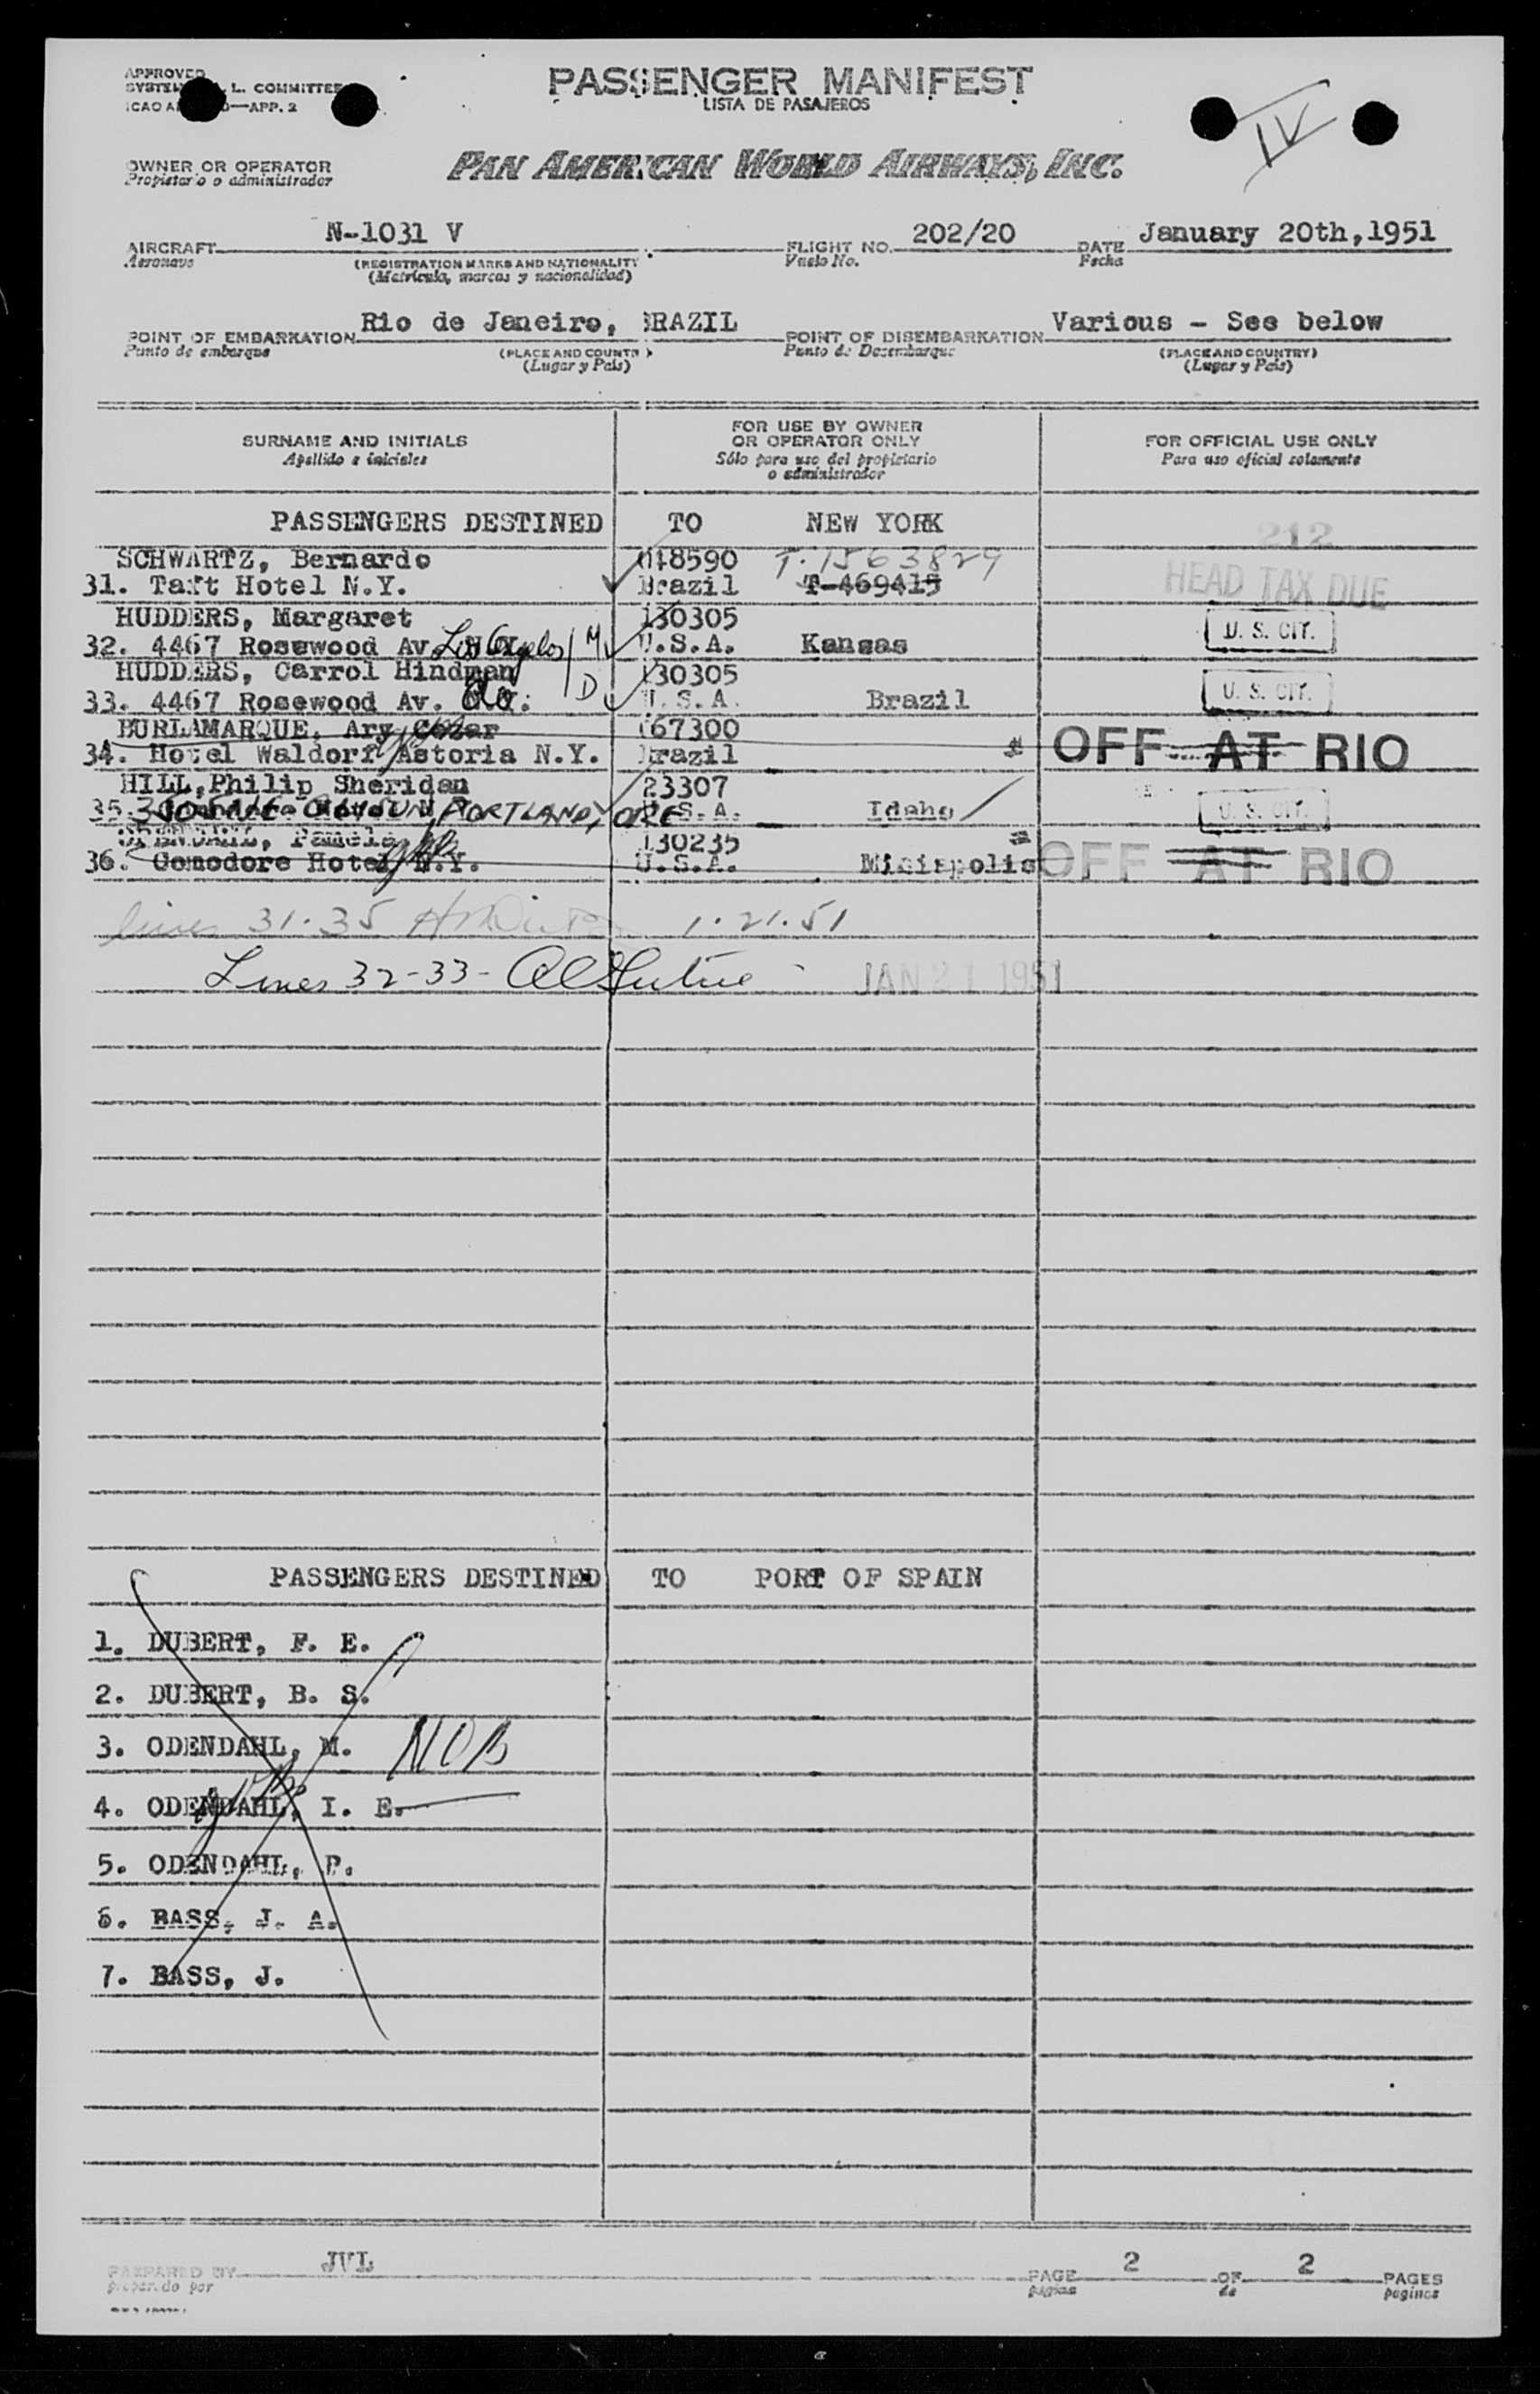 APPROVED
L. COMMITTEE
APP. 2
PASSENGER MANIFEST
LISTA DE PASAJEROS
IV
OWNER OR OPERATOR
Propietario o administrador
PAN AMERICAN WORLD AIRWAYS, INC.
AIRCRAFT N-1031 V FLIGHT NO. 202/20 DATE January 20th,1951
Aeronave (REGISTRATION MARKS AND NATIONALITY Vuelo No. Fecha
(Matrícula, marcas y nacionalidad)
POINT OF EMBARKATION Rio de Janeiro, BRAZIL POINT OF DISEMBARKATION Various - See below
Punto de embarque (PLACE AND COUNTRY) Punto de Desembarque (PLACE AND COUNTRY)
(Lugar y País) (Lugar y País)
SURNAME AND INITIALS
Apellido e iniciales
FOR USE BY OWNER
OR OPERATOR ONLY
Sólo para uso del propietario
o administrador
FOR OFFICIAL USE ONLY
Para uso oficial solamente
PASSENGERS DESTINED TO NEW YORK
212
SCHWARTZ, Bernardo 018590 T-1563829
31. Taft Hotel N.Y. Brazil T-469415 HEAD TAX DUE
HUDDERS, Margaret 130305
32. 4467 Rosewood Av. Los Angeles M U.S.A. Kansas U. S. CIT.
HUDDERS, Carrol Hindman 130305
33. 4467 Rosewood Av. Do D U.S.A. Brazil U. S. CIT.
BURLAMARQUE, Ary Cesar 67300
34. Hotel Waldorf Astoria N.Y. Brazil OFF AT RIO
HILL, Philip Sheridan 23307
35. PORTLAND, ORE U.S.A. Idaho U. S. CIT.
Pamela 130235
36. Comodore Hotel N.Y. U.S.A. OFF AT RIO
lines 31-35 1.21.51
Lines 32-33- JAN 21 1951
PASSENGERS DESTINED TO PORT OF SPAIN
1. DUBERT, F. E.
2. DUBERT, B. S.
3. ODENDAHL, M. NOB
4. ODENDAHL, I. E.
5. ODENDAHL, P.
6. BASS, J. A.
7. BASS, J.
PREPARED BY JVL PAGE 2 OF 2 PAGES
preparado por página de paginas